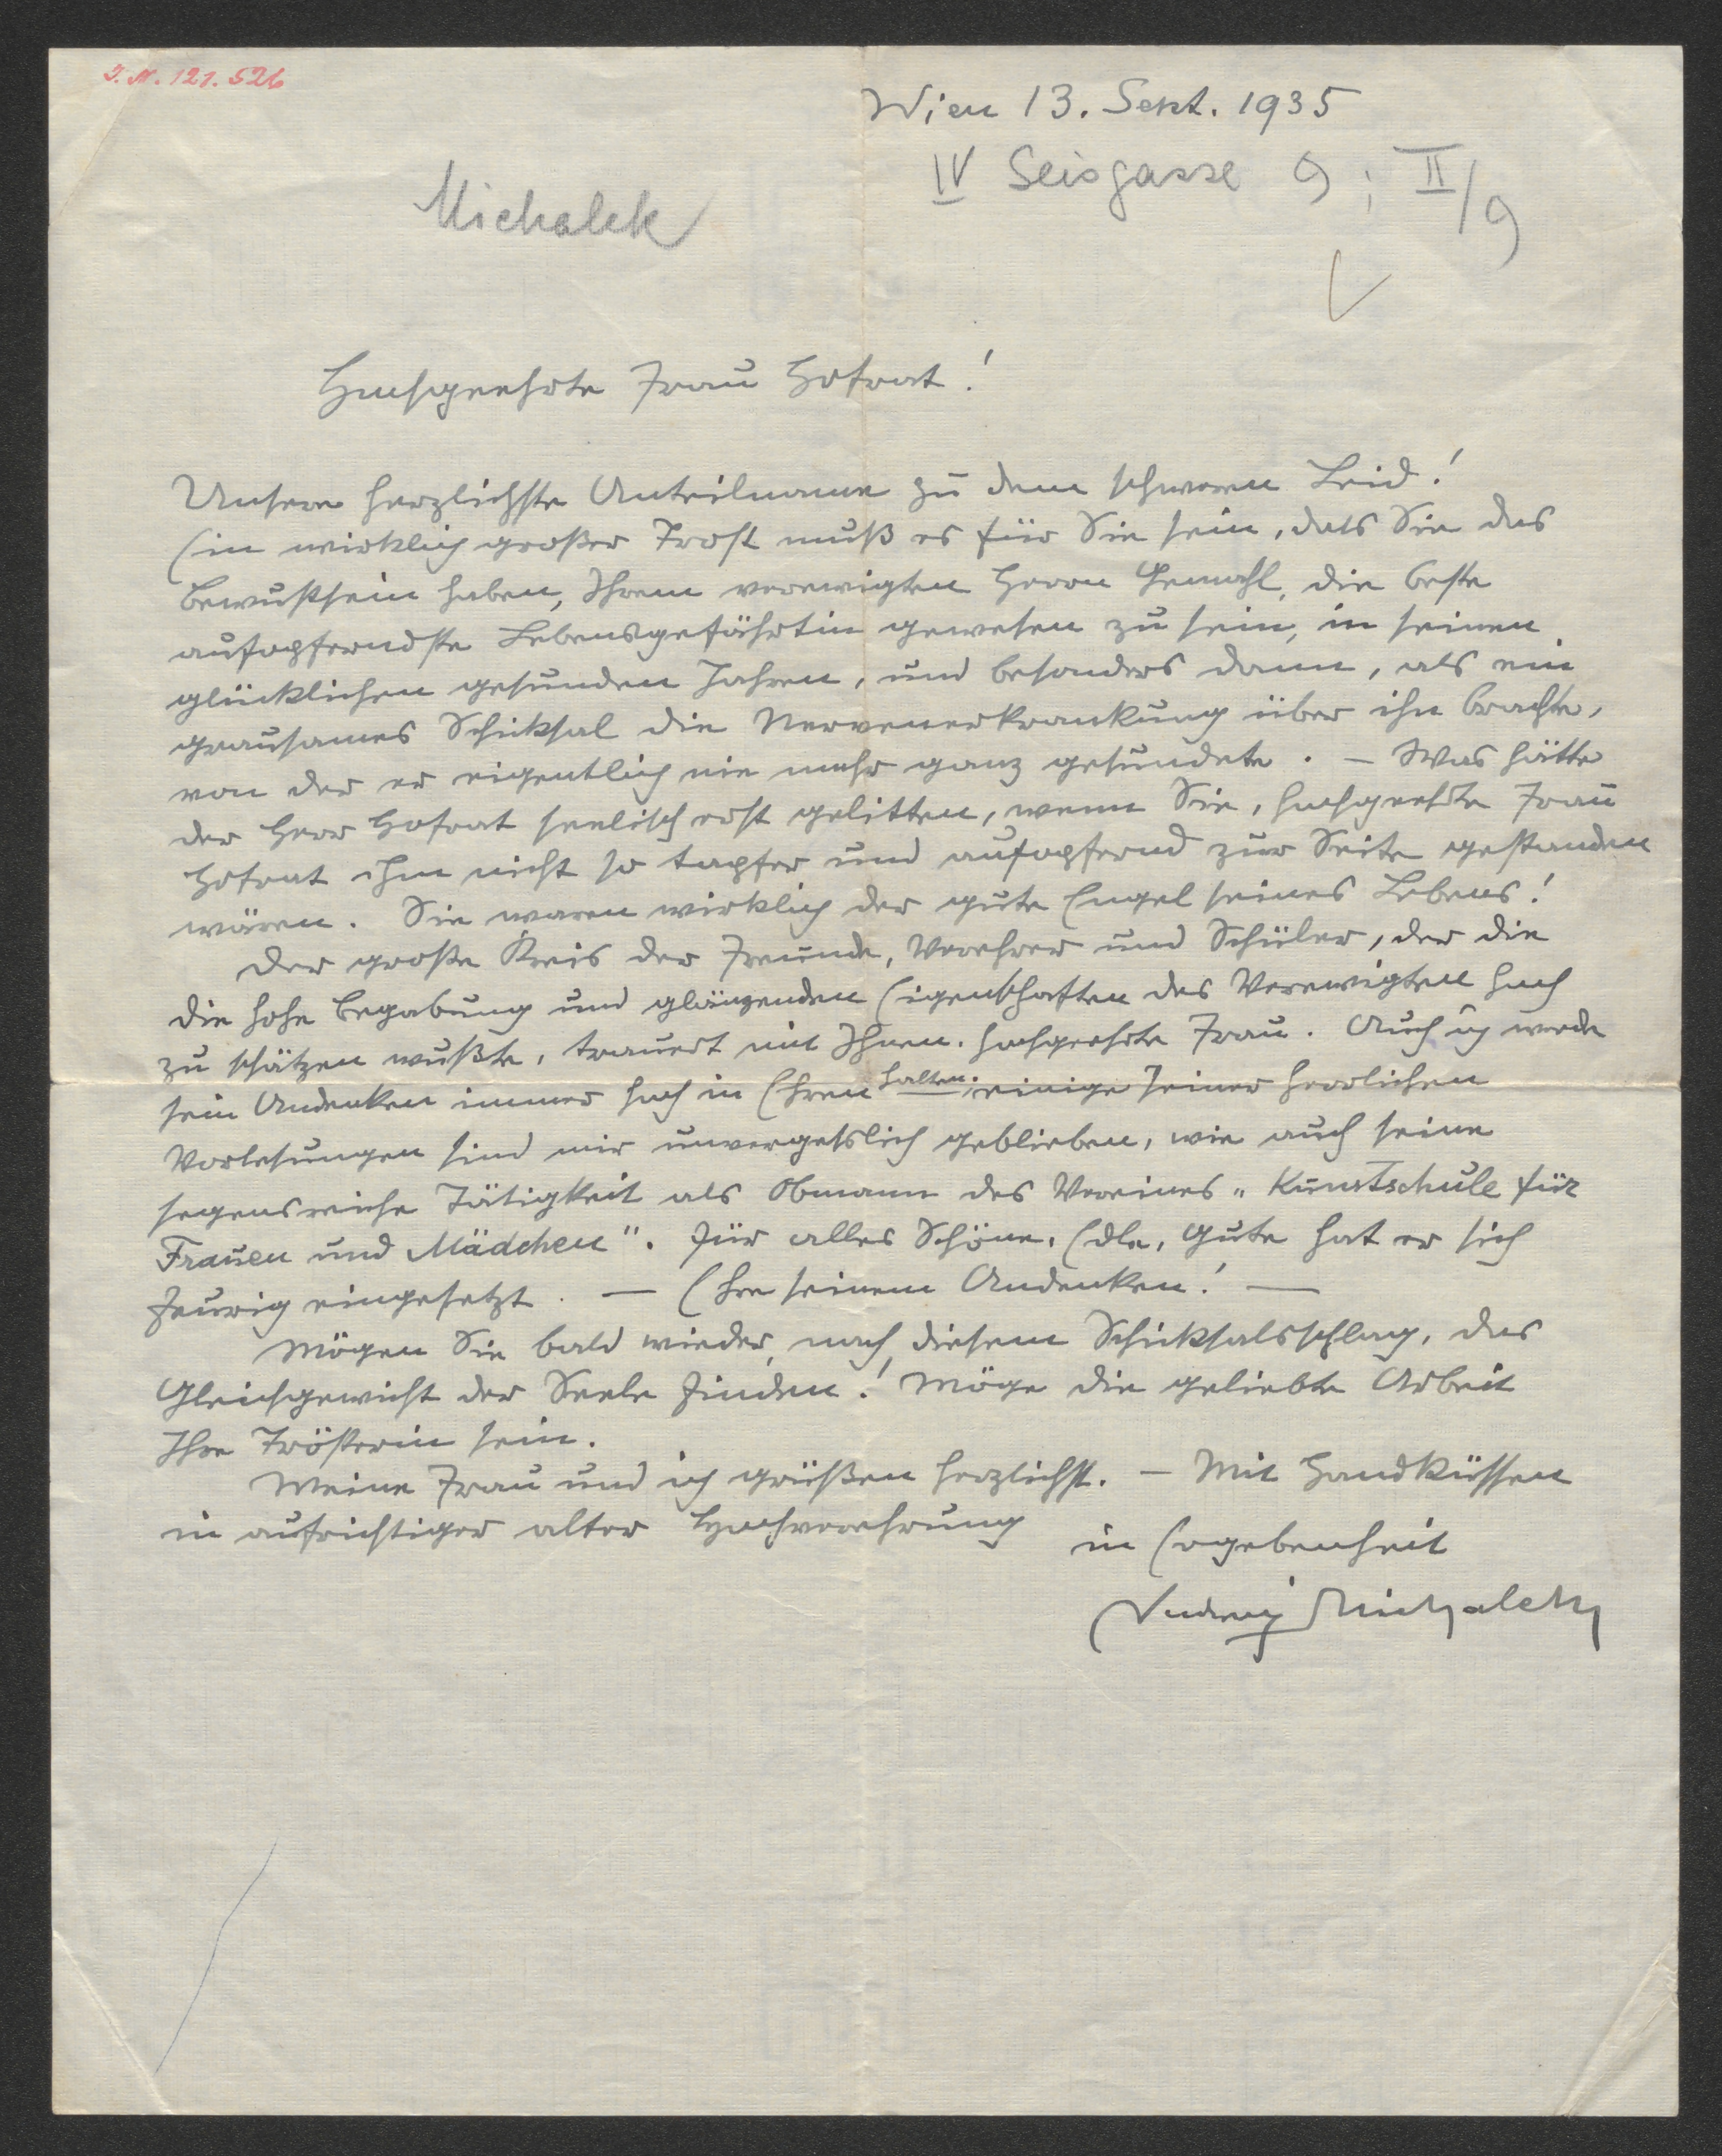 I.N. 121.526
Wien 13. Sept. 1935
IV Seisgasse 9; II/9
Michalek
Hochgeehrte Frau Hofrat!
Unsere herzlichste Anteilname zu dem schweren Leid!
Ein wirklich großer Trost muß es für Sie sein, dass Sie das
Bewußtsein haben, Ihrem verewigten Herrn Gemahl, die beste
aufopferndste Lebensgefährtin gewesen zu sein, in seinen
glücklichen gesunden Jahren, und besonders dann, als ein
grausames Schiksal die Nervenerkrankung über ihn brachte,
von der er eigentlich nie mehr ganz gesundete. – Was hätte
der Herr Hofrat seelisch erst gelitten, wenn Sie, hochgeehrte Frau
Hofrat ihm nicht so tapfer und aufopfernd zur Seite gestanden
wären. Sie waren wirklich der gute Engel seines Lebens!
Der große Kreis der Freunde, Verehrer und Schüler, der die
die hohe Begabung und glänzenden Eigenschaften des Verewigten hoch
zu schätzen wußte, trauert mit Ihnen. hochgeehrte Frau. Auch ich werde
sein Andenken immer hoch in Ehren halten; einige seiner herrlichen
Vorlesungen sind mir unvergesslich geblieben, wie auch seine
segensreiche Tätigkeit als Obmann des Vereines „Kunstschule für
Frauen und Mädchen". Für alles Schöne, Edle, Gute hat er sich
feurig eingesetzt. — Ehre seinem Andenken! —
Mögen Sie bald wieder, nach diesem Schiksalsschlag, das
Gleichgewicht der Seele finden! Möge die geliebte Arbeit
Ihre Trösterin sein.
Meine Frau und ich grüßen herzlichst. – Mit Handküssen
in aufrichtiger alter Hochverehrung
in Ergebenheit
Ludwig Michalek